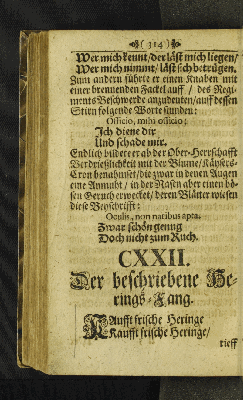 ( 314 )
Wer mich kennt / der läst mich liegen /
Wer mich nimmt / läst sich betrügen.
Zum andern führte er einen Knaben mit
einer brennenden Fackel auff / des Regi-
ments Beschwerde anzudeuten / auff dessen
Stirn folgende Worte stunden:
Officio, mihi officio:
Ich diene dir
Und schade mir.
Endlich bildete er ab der Ober-Herrschafft
Verdrießlichkeit mit der Blume / Käysers-
Cron benahmset / die zwar in denen Augen
eine Anmuht / in der Nasen aber einen bö-
sen Geruch erwecket / deren Blätter wiesen
diese Beyschrifft:
Oculis, non naribus apta.
Zwar schön genug
Doch nicht zum Ruch.
CXXII.
Der beschriebene He-
rings-Fang.
KAufft frische Heringe
Kaufft frische Heringe /
rieff